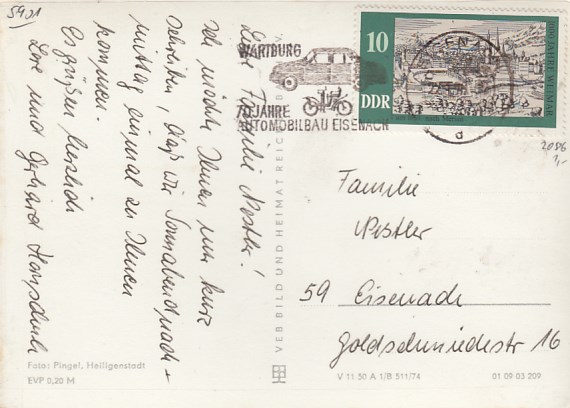 5901
Liebe Familie Nestler!
Ich möchte Ihnen nur kurz
schreiben, daß wir Sonnabendnach-
mittag einmal zu Ihnen
kommen.
Es grüßen herzlich
Lore und Gerhard
Foto: Pingel, Heiligenstadt
EVP 0,20 M
VEB BILD UND HEIMAT REICHENBACH
WARTBURG
75 JAHRE
AUTOMOBILBAU EISENACH
10
DDR
1000 JAHRE WEIMAR
2086
1,-
Familie
Nestler
59 Eisenach
Goldschmiedestr 16
V 11 50 A 1/B 511/74
01 09 03 209